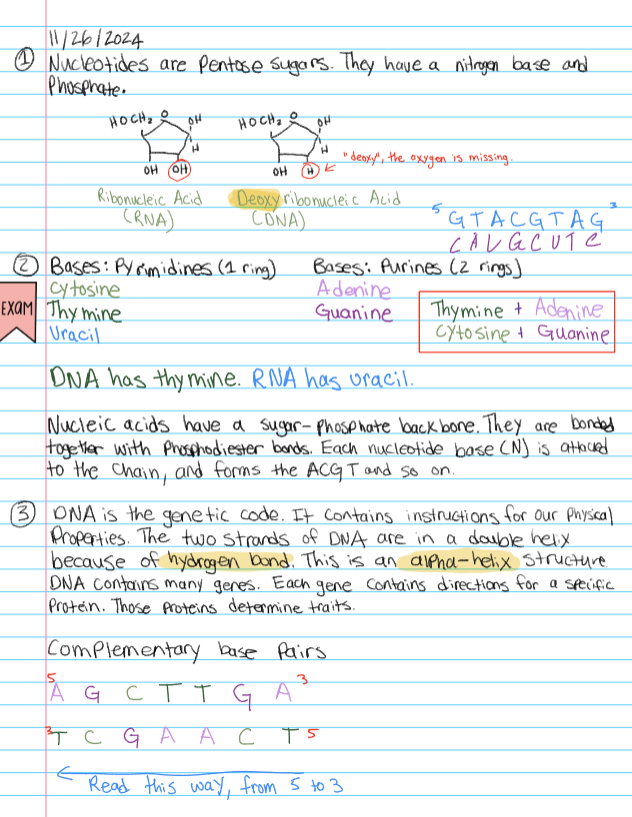 11/26/2024
① Nucleotides are Pentose sugars. They have a nitrogen base and
Phosphate.
HOCH₂ O OH
H
OH OH
HOCH₂ O OH
H
OH H
"deoxy", the oxygen is missing.
Ribonucleic Acid
(RNA)
Deoxyribonucleic Acid
(DNA)
5 GTACGTAG 3
CAUGCUTC
② Bases: Pyrimidines (1 ring)
Cytosine
Thymine
Uracil
EXAM
Bases: Purines (2 rings)
Adenine
Guanine
Thymine + Adenine
Cytosine + Guanine
DNA has thymine. RNA has uracil.
Nucleic acids have a sugar-Phosphate backbone. They are bonded
together with Phosphodiester bonds. Each nucleotide base (N) is attached
to the chain, and forms the ACGT and so on.
③ DNA is the genetic code. It contains instructions for our Physical
Properties. The two strands of DNA are in a double helix
because of hydrogen bond. This is an alpha-helix structure
DNA contains many genes. Each gene contains directions for a specific
Protein. Those Proteins determine traits.
Complementary base Pairs
5 A G C T T G A 3
3 T C G A A C T 5
Read this way, from 5 to 3